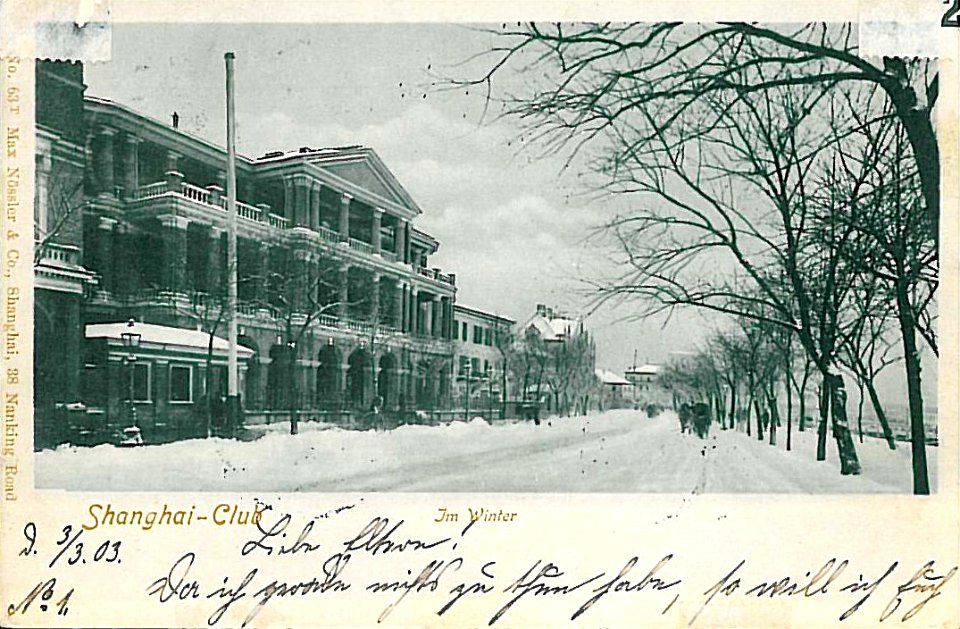 No. 63T Max Nössler & Co., Shanghai, 38 Nanking Road
Shanghai-Club
Im Winter
d. 3/3.03.
Liebe Eltern!
No 1.
Da ich gerade nichts zu thun habe, so will ich Euch